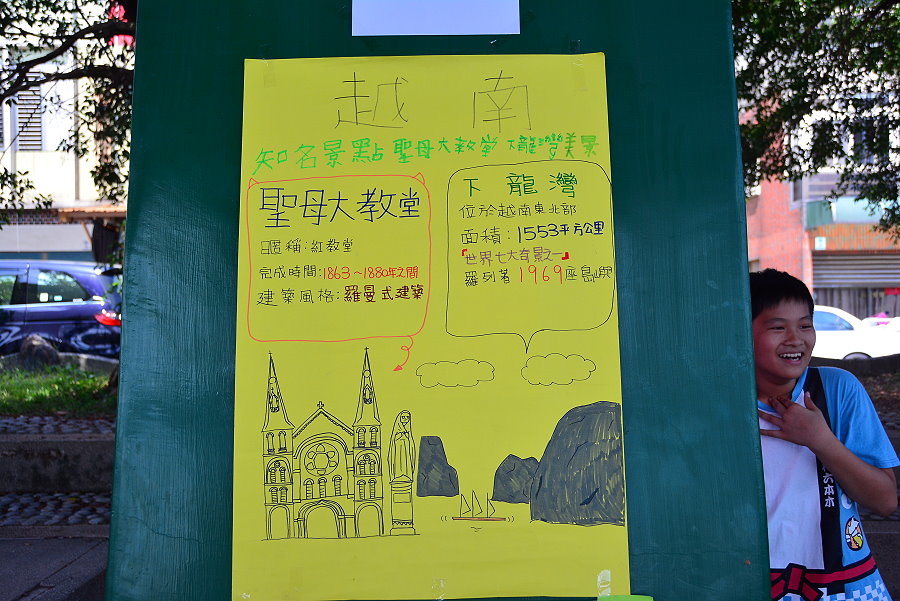 越南
知名景點 聖母大教堂 下龍灣美景
聖母大教堂
暱稱:紅教堂
完成時間:1863~1880年之間
建築風格:羅曼式建築
下龍灣
位於越南東北部
面積:1553平方公里
『世界七大奇景之一』
羅列著1969座島嶼
六本木